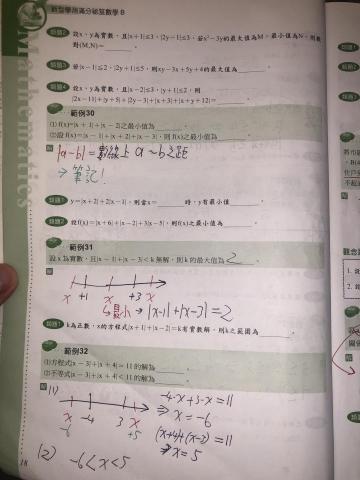 新型學測滿分祕笈數學 B
Mathematics
類題2 設x、y為實數，且|x+1|≤3，|2y−1|≤3，若x²−3y的最大值為M，最小值為N，則數對(M,N)=
類題3 若|x−1|≤2，|2y+1|≤5，則xy−3x+5y+4的最大值為 。
類題4 設x、y為實數，且|x−2|≤3，|y+1|≤2，則
|2x−11|+|y+5|+|2y−3|+|x+3|+|x+y+12|= 。
範例30
(1) f(x)=|x+1|+|x−2|之最小值為 。
(2)設f(x)=|x−1|+|x+2|+|x−3|，則f(x)之最小值為 。
解 |a-b|=數線上 a～b之距
→ 筆記!
類題1 y=|x+2|+2|x−1|，則當x= 時，y有最小值 。
類題2 設f(x)=|x+6|+|x−2|+3|x−5|，則f(x)之最小值為 。
範例31
設x為實數，且|x−1|+|x−3|<k無解，則k的最大值為 2 。
解
x +1 x +3 x
↳最小 → |x-1|+|x-3|=2
類題1 k為正數，x的方程式|x+1|+|x−2|=k有實數解，則k之範圍為 。
範例32
(1)方程式|x−3|+|x+4|=11的解為 。
(2)不等式|x−3|+|x+4|<11的解為 。
解 (1) -4-x+3-x=11
⇒ x=-6
x -4 3 x
-6 +5
(x+4)+(x-3)=11
⇒ x=5
(2) -6<x<5